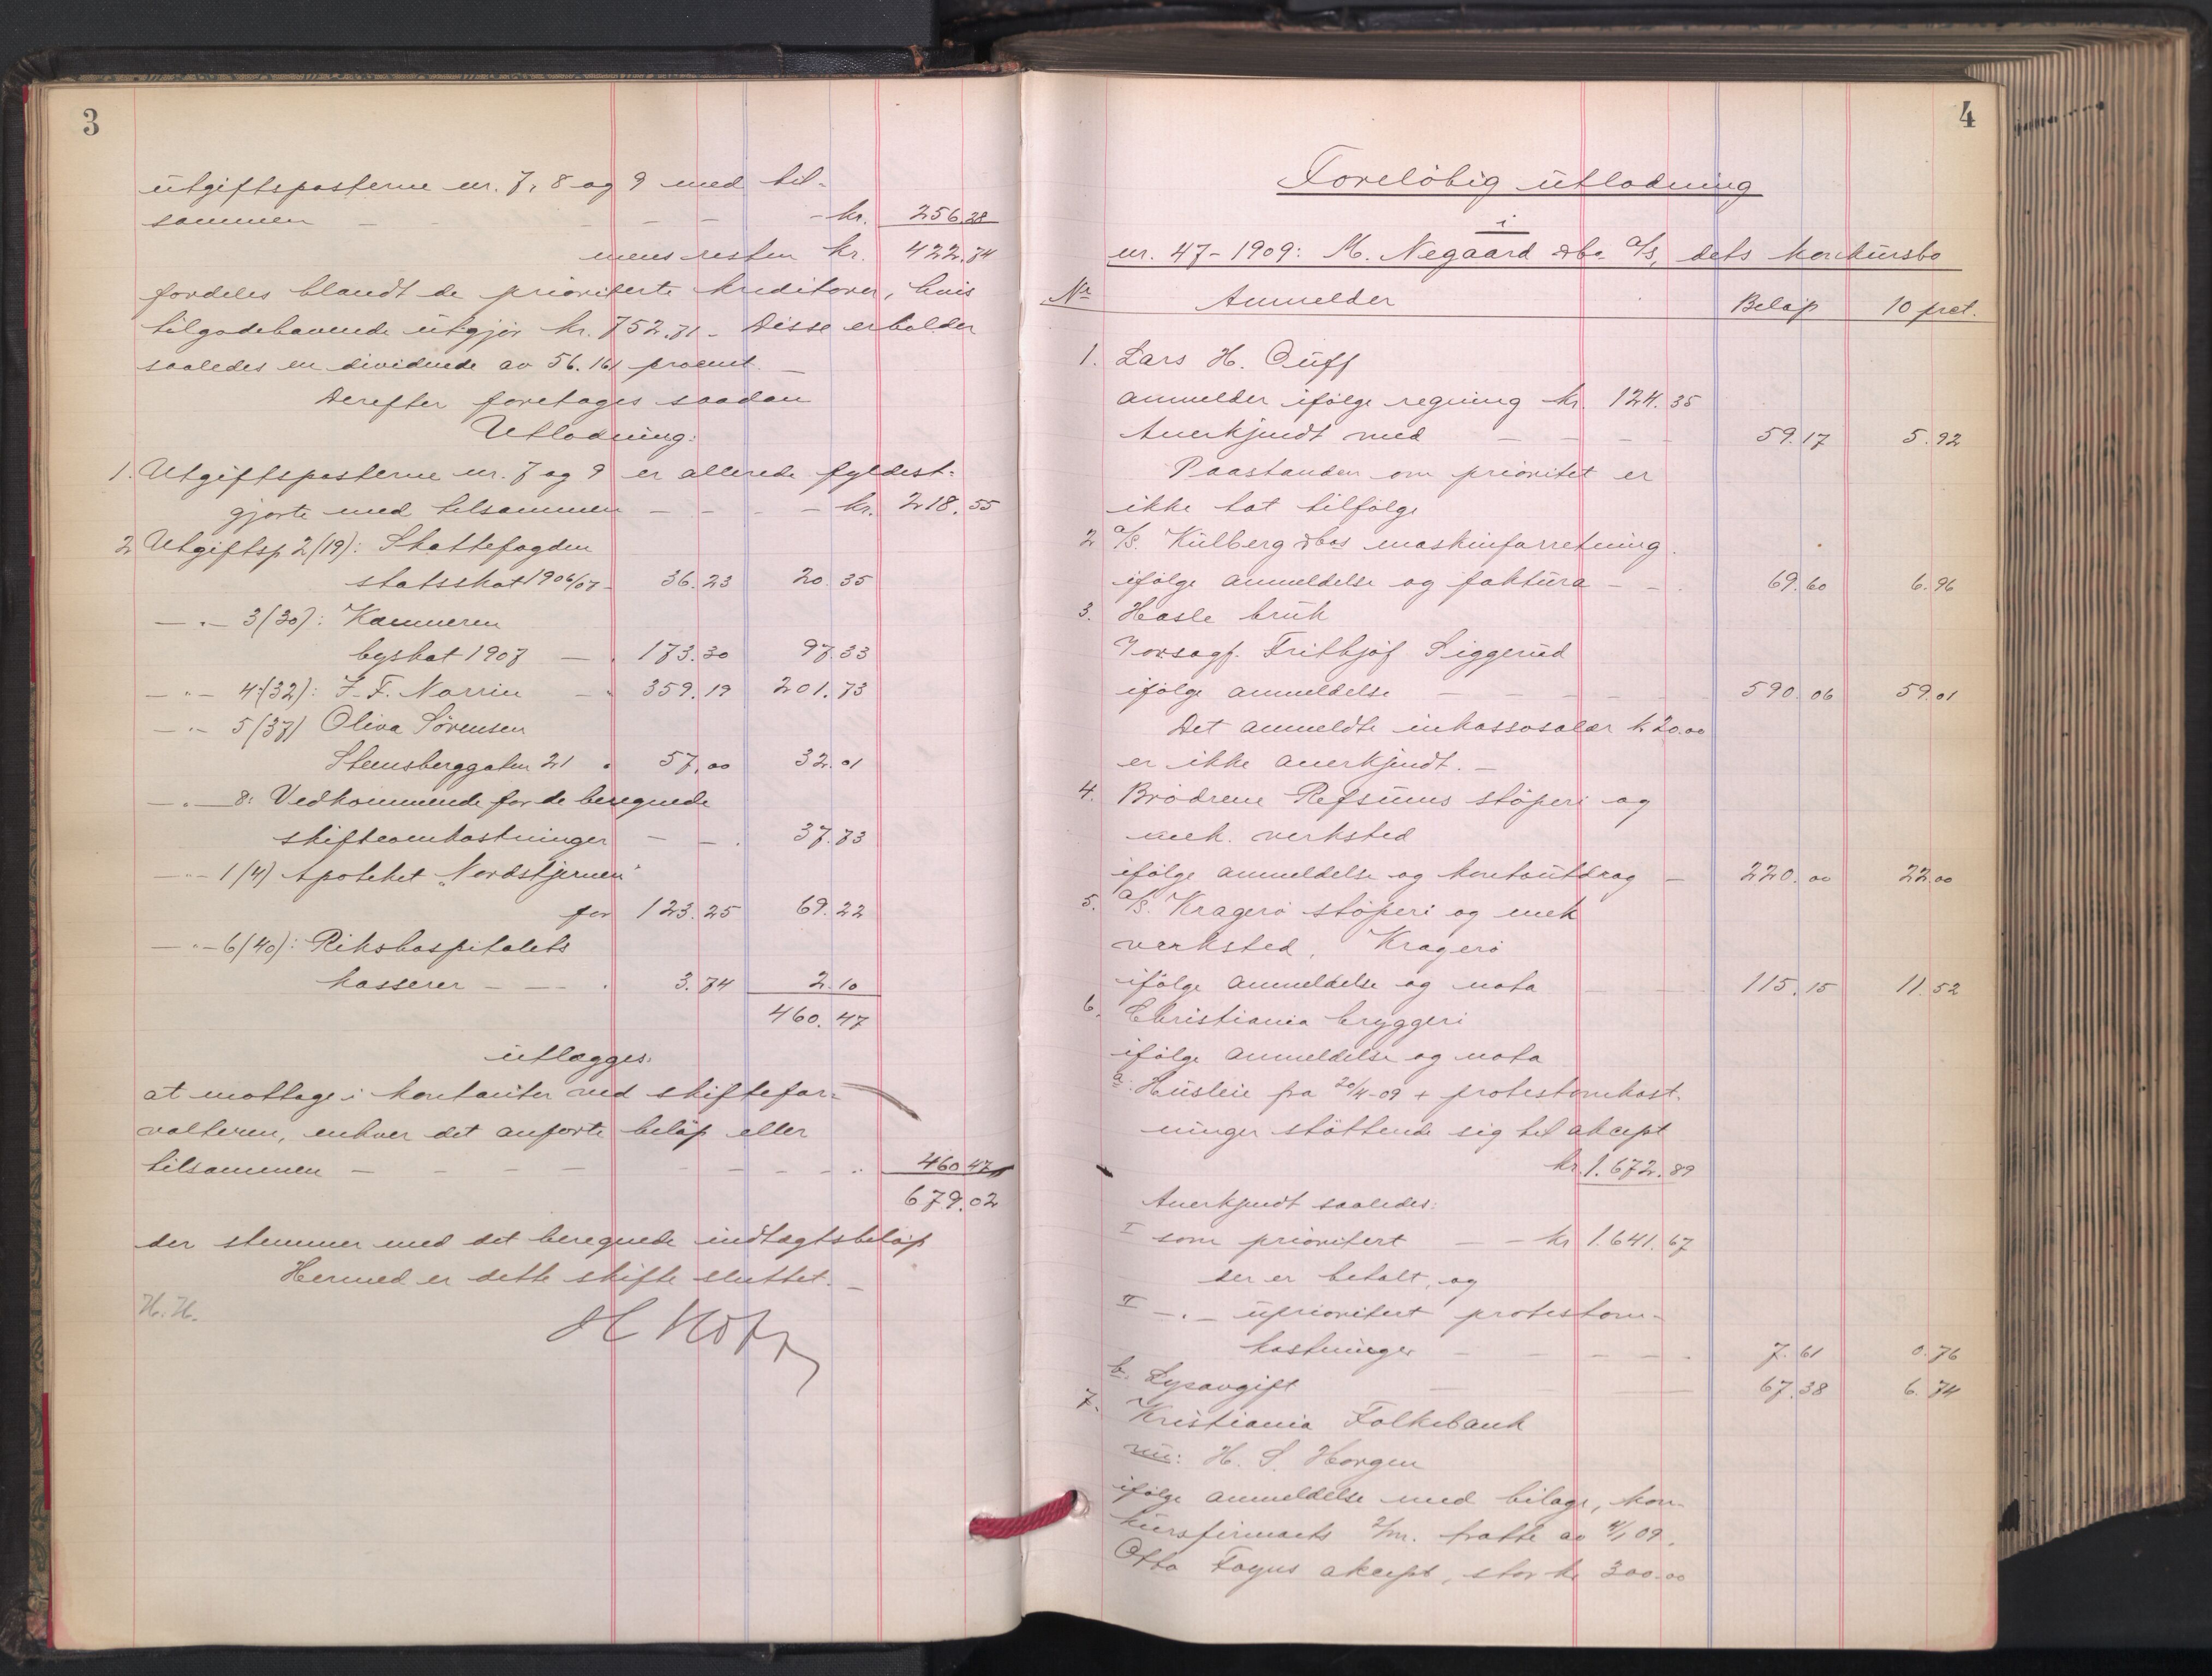 3
utgiftsposterne nr. 7, 8 og 9 med til-
sammen - - - - kr. 256.28
mens resten kr. 422.74
fordeles blandt de prioriterte kreditorer, hvis
tilgodehavende utgjør kr. 752.71 - Disse erholder
saaledes en dividende av 56.161 procent. -
Derefter foretages saadan
Utlodning:
1. Utgiftsposterne nr. 7 og 9 er allerede fyldest-
gjorte med tilsammen - - - - kr. 218.55
2 Utgiftsp. 2 (19): Skattefogden
statsskat 1906/07 - 36.23 20.35
- " - 3 (30): Kæmneren
byskat 1907 - 173.30 97.33
- " - 4 (32): J. F. Norrin - " 359.19 201.73
- " - 5 (37) Oliva Sørensen
Stensberggaten 21 " 57.00 32.01
- " - 8: Vedkommende for de beregnede
skifteomkostninger - - . 37.73
- " - 1 (4) Apoteket "Nordstjernen"
for 123.25 69.22
- " - 6 (40): Rikshospitalets
kasserer - - . 3.74 2.10
460.47
utlægges:
at mottage i kontanter ved skiftefor-
valteren, enhver det anførte beløp eller
tilsammen - - - - - - - .. 460.47
679.02
der stemmer med det beregnede indtægtsbeløp
Hermed er dette skifte sluttet. -
H. H.
4
Foreløbig utlodning
i
nr. 47 - 1909: M. Negaard & Co. A/S, dets konkursbo
No Anmelder Beløp 10 prct.
1. Lars H. Ouff
anmelder ifølge regning kr. 124.35
Anerkjendt med - - - - 59.17 5.92
Paastanden om prioritet er
ikke tat tilfølge
2 A/S. Külberg & Cos maskinforretning.
ifølge anmeldelse og faktura - - 69.60 6.96
3. Hasle bruk
v/ o.r.sagf. Frithjof Siggerud
ifølge anmeldelse - - - - - 590.06 59.01
Det anmeldte inkassosalær k 20.00
er ikke anerkjendt. -
4. Brødrene Refsums støperi og
mek. verksted
ifølge anmeldelse og kontoutdrag - 220.00 22.00
5. A/S. Kragerø støperi og mek
værksted, Kragerø
ifølge anmeldelse og nota - - 115.15 11.52
6. Christiania bryggeri
ifølge anmeldelse og nota
a: Husleie fra 20/4-09 + protestomkost-
ninger støttende sig til akcept
kr. 1.672.89
Anerkjendt saaledes:
I som prioritert - - kr 1.641.67
der er betalt, og
II - " - uprioritert protestom-
kostninger - - - - - 7.61 0.76
b. Lysavgift - - - 67.38 6.74
7. Kristiania Folkebank
nu: H. S. Horgen
ifølge anmeldelse med bilage, kon-
kursfirmaets 2/m. tratte av 4/1 09.
Otto Fagus akcept, stor kr 300.00